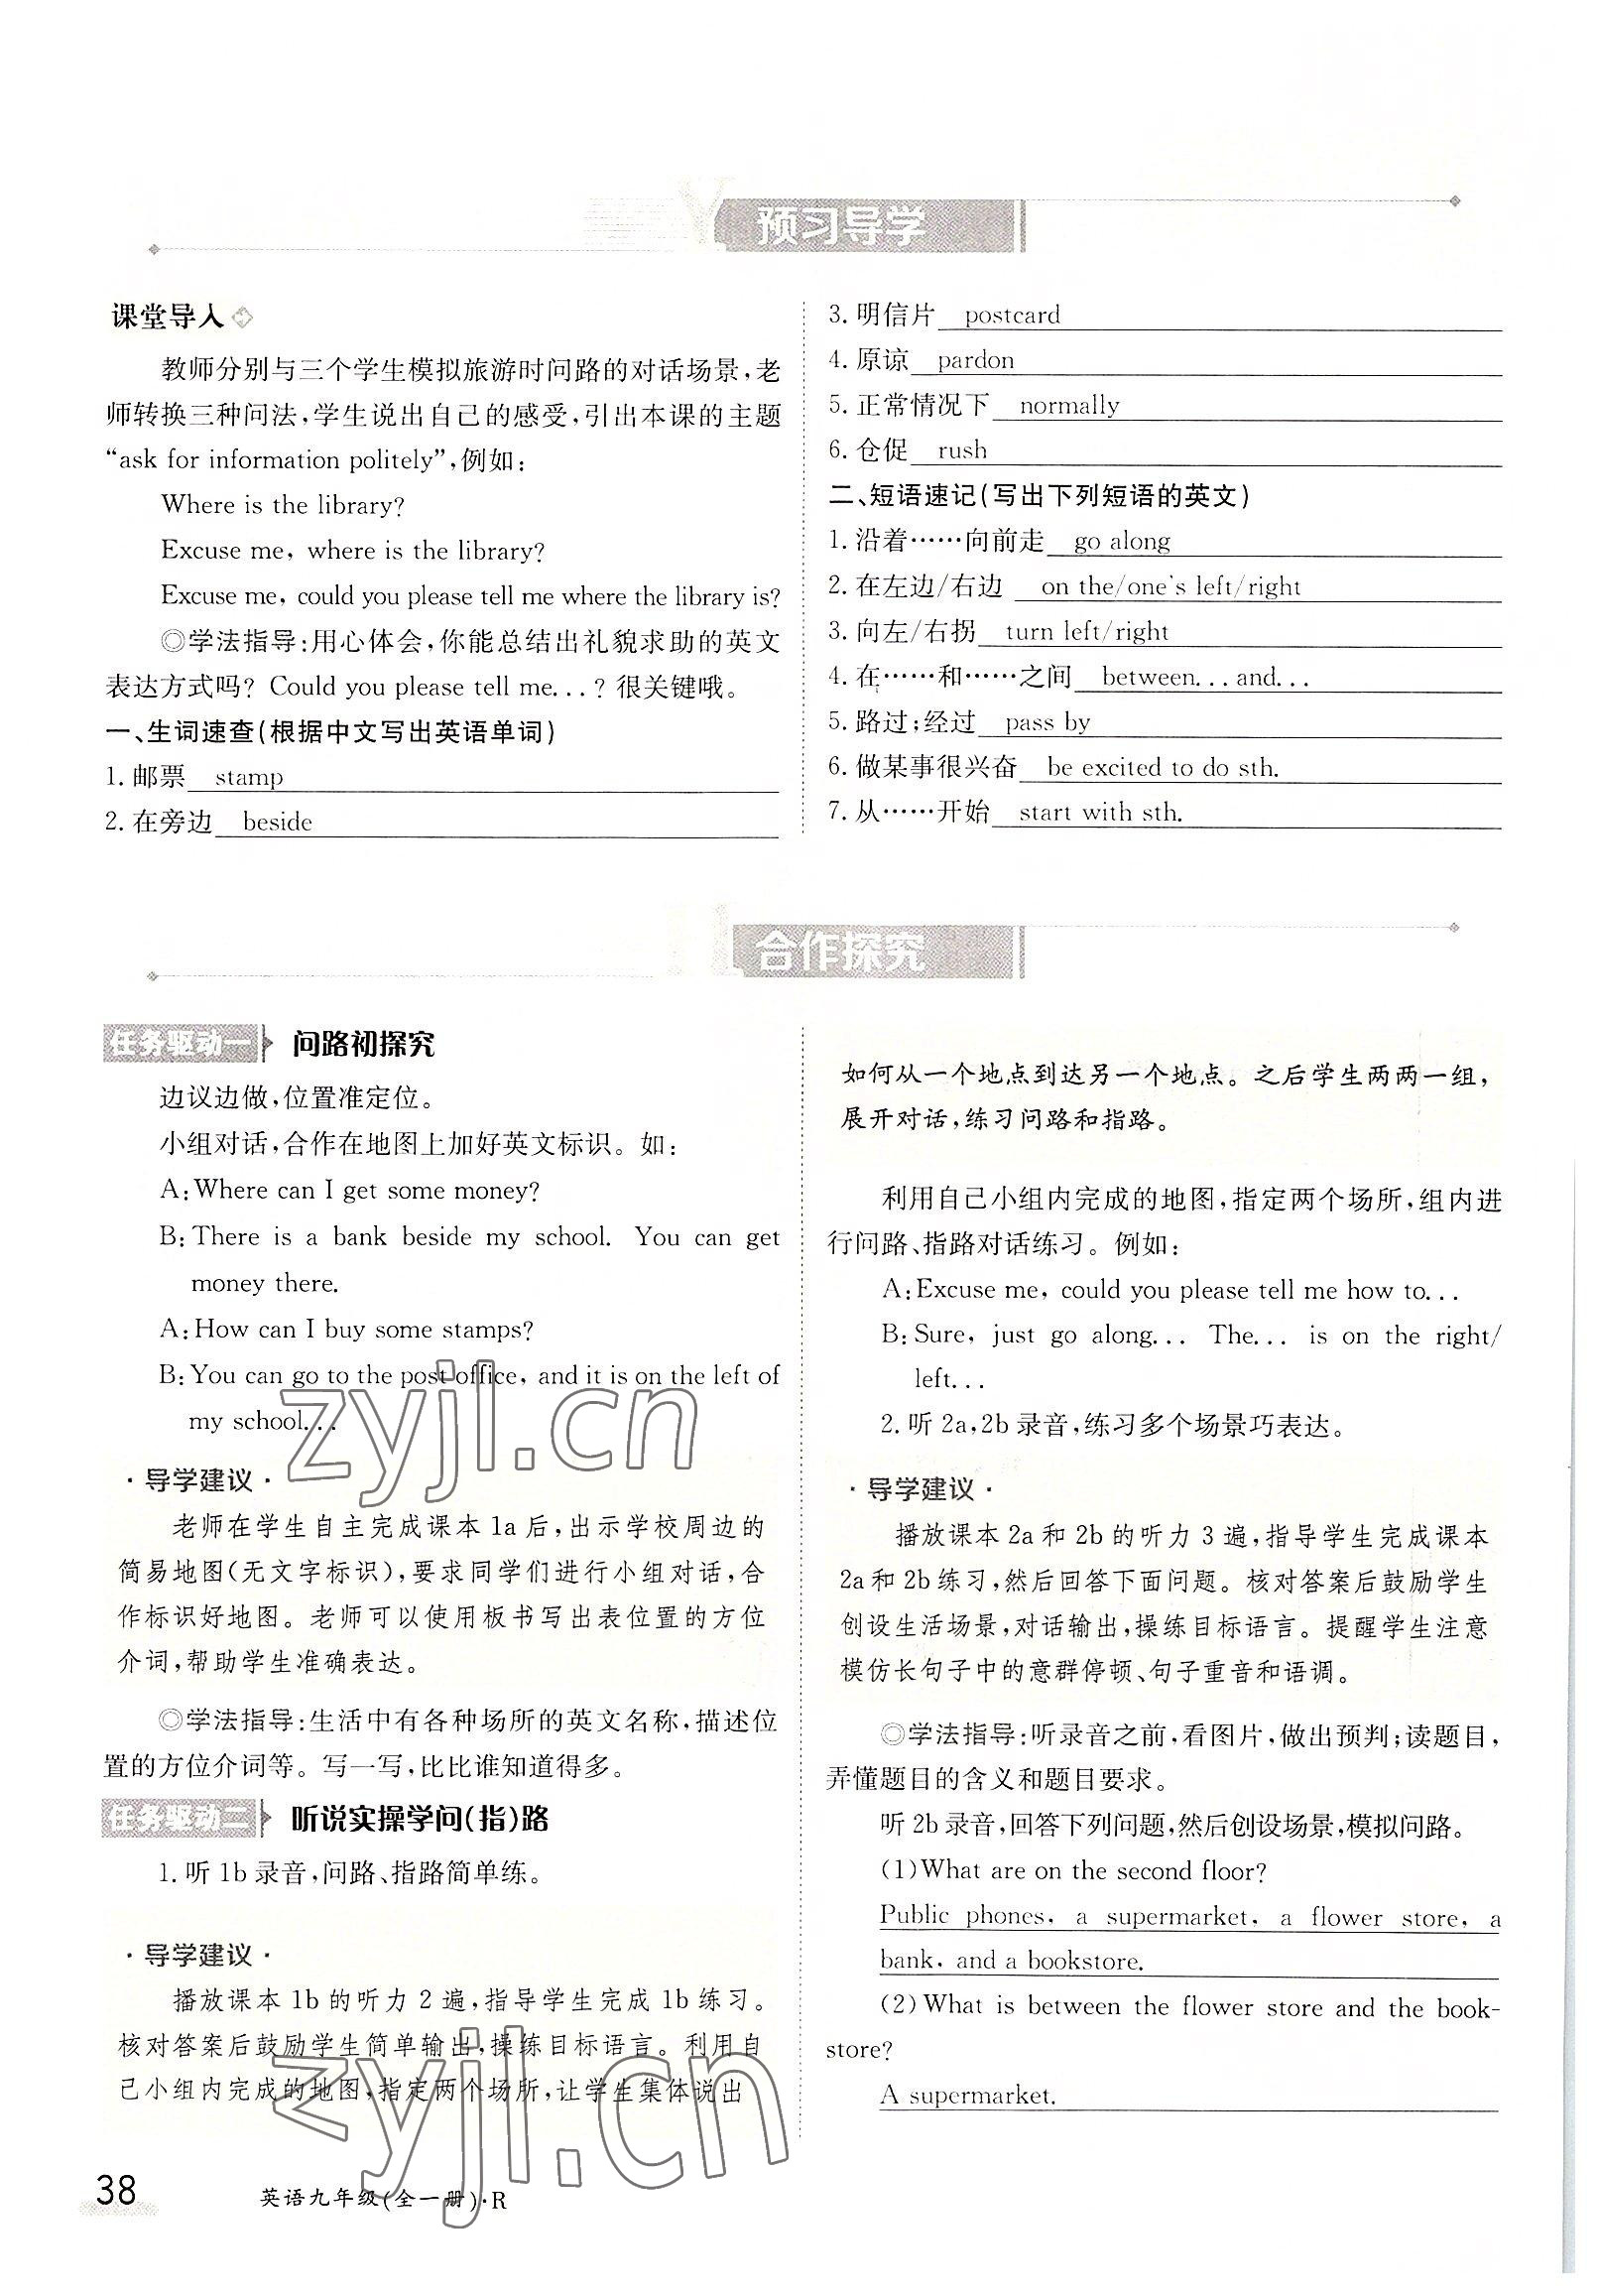 预习导学
课堂导入
教师分别与三个学生模拟旅游时问路的对话场景,老
师转换三种问法,学生说出自己的感受,引出本课的主题
“ask for information politely”,例如:
Where is the library?
Excuse me, where is the library?
Excuse me, could you please tell me where the library is?
◎学法指导:用心体会,你能总结出礼貌求助的英文
表达方式吗? Could you please tell me...? 很关键哦。
一、生词速查(根据中文写出英语单词)
1. 邮票 stamp
2. 在旁边 beside
3. 明信片 postcard
4. 原谅 pardon
5. 正常情况下 normally
6. 仓促 rush
二、短语速记(写出下列短语的英文)
1. 沿着……向前走 go along
2. 在左边/右边 on the/one's left/right
3. 向左/右拐 turn left/right
4. 在……和……之间 between...and...
5. 路过;经过 pass by
6. 做某事很兴奋 be excited to do sth.
7. 从……开始 start with sth.
合作探究
任务驱动一 问路初探究
边议边做,位置准定位。
小组对话,合作在地图上加好英文标识。如:
A:Where can I get some money?
B:There is a bank beside my school. You can get
money there.
A:How can I buy some stamps?
B:You can go to the post office, and it is on the left of
my school...
·导学建议·
老师在学生自主完成课本 1a 后,出示学校周边的
简易地图(无文字标识),要求同学们进行小组对话,合
作标识好地图。老师可以使用板书写出表位置的方位
介词,帮助学生准确表达。
◎学法指导:生活中有各种场所的英文名称,描述位
置的方位介词等。写一写,比比谁知道得多。
任务驱动二 听说实操学问(指)路
1. 听 1b 录音,问路、指路简单练。
·导学建议·
播放课本 1b 的听力 2 遍,指导学生完成 1b 练习。
核对答案后鼓励学生简单输出,操练目标语言。利用自
己小组内完成的地图,指定两个场所,让学生集体说出
如何从一个地点到达另一个地点。之后学生两两一组,
展开对话,练习问路和指路。
利用自己小组内完成的地图,指定两个场所,组内进
行问路、指路对话练习。例如:
A:Excuse me, could you please tell me how to...
B:Sure, just go along... The... is on the right/
left...
2. 听 2a,2b 录音,练习多个场景巧表达。
·导学建议·
播放课本 2a 和 2b 的听力 3 遍,指导学生完成课本
2a 和 2b 练习,然后回答下面问题。核对答案后鼓励学生
创设生活场景,对话输出,操练目标语言。提醒学生注意
模仿长句子中的意群停顿、句子重音和语调。
◎学法指导:听录音之前,看图片,做出预判;读题目,
弄懂题目的含义和题目要求。
听 2b 录音,回答下列问题,然后创设场景,模拟问路。
(1)What are on the second floor?
Public phones, a supermarket, a flower store, a
bank, and a bookstore.
(2)What is between the flower store and the book-
store?
A supermarket.
zyjl.cn
zyjl.cn
38 英语九年级(全一册)·R